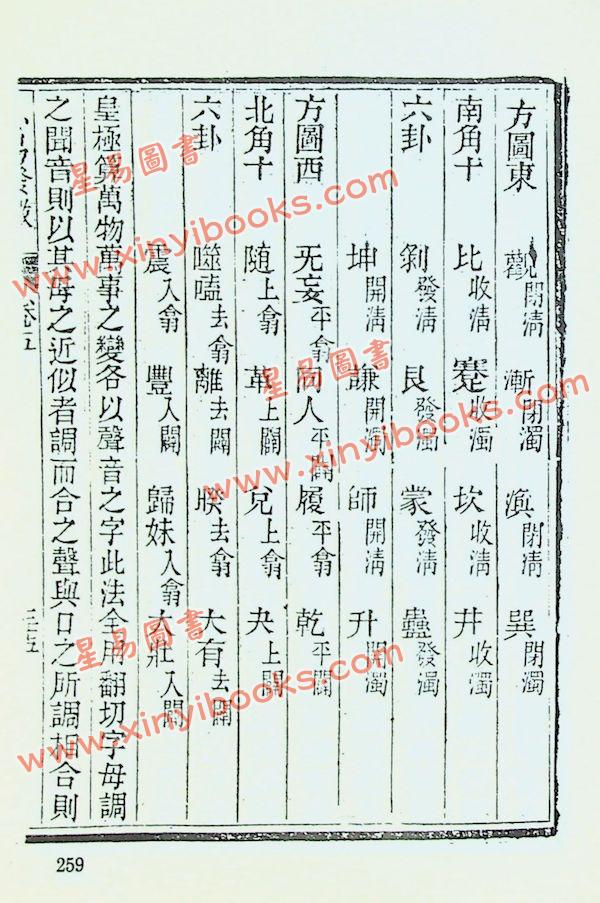 方圖東 觀閉清 漸閉濁 渙閉清 巽閉濁
南角十 比收清 蹇收濁 坎收清 井收濁
六卦 剝發清 艮發濁 蒙發清 蠱發濁
坤開清 謙開濁 師開清 升開濁
方圖西 无妄平翕 同人平闢 履平翕 乾平闢
北角十 随上翕 革上闢 兌上翕 夬上闢
六卦 噬嗑去翕 離去闢 睽去翕 大有去闢
震入翕 豐入闢 歸妹入翕 大壯入闢
皇極算萬物萬事之變各以聲音之字此法全用翻切字母調
之聞音則以其母之近似者調而合之聲與口之所調相合則
卷五
三五
259
星易圖書
www.xinyibooks.com
星易圖書
www.xinyibooks.com
星易圖書
www.xinyibooks.com